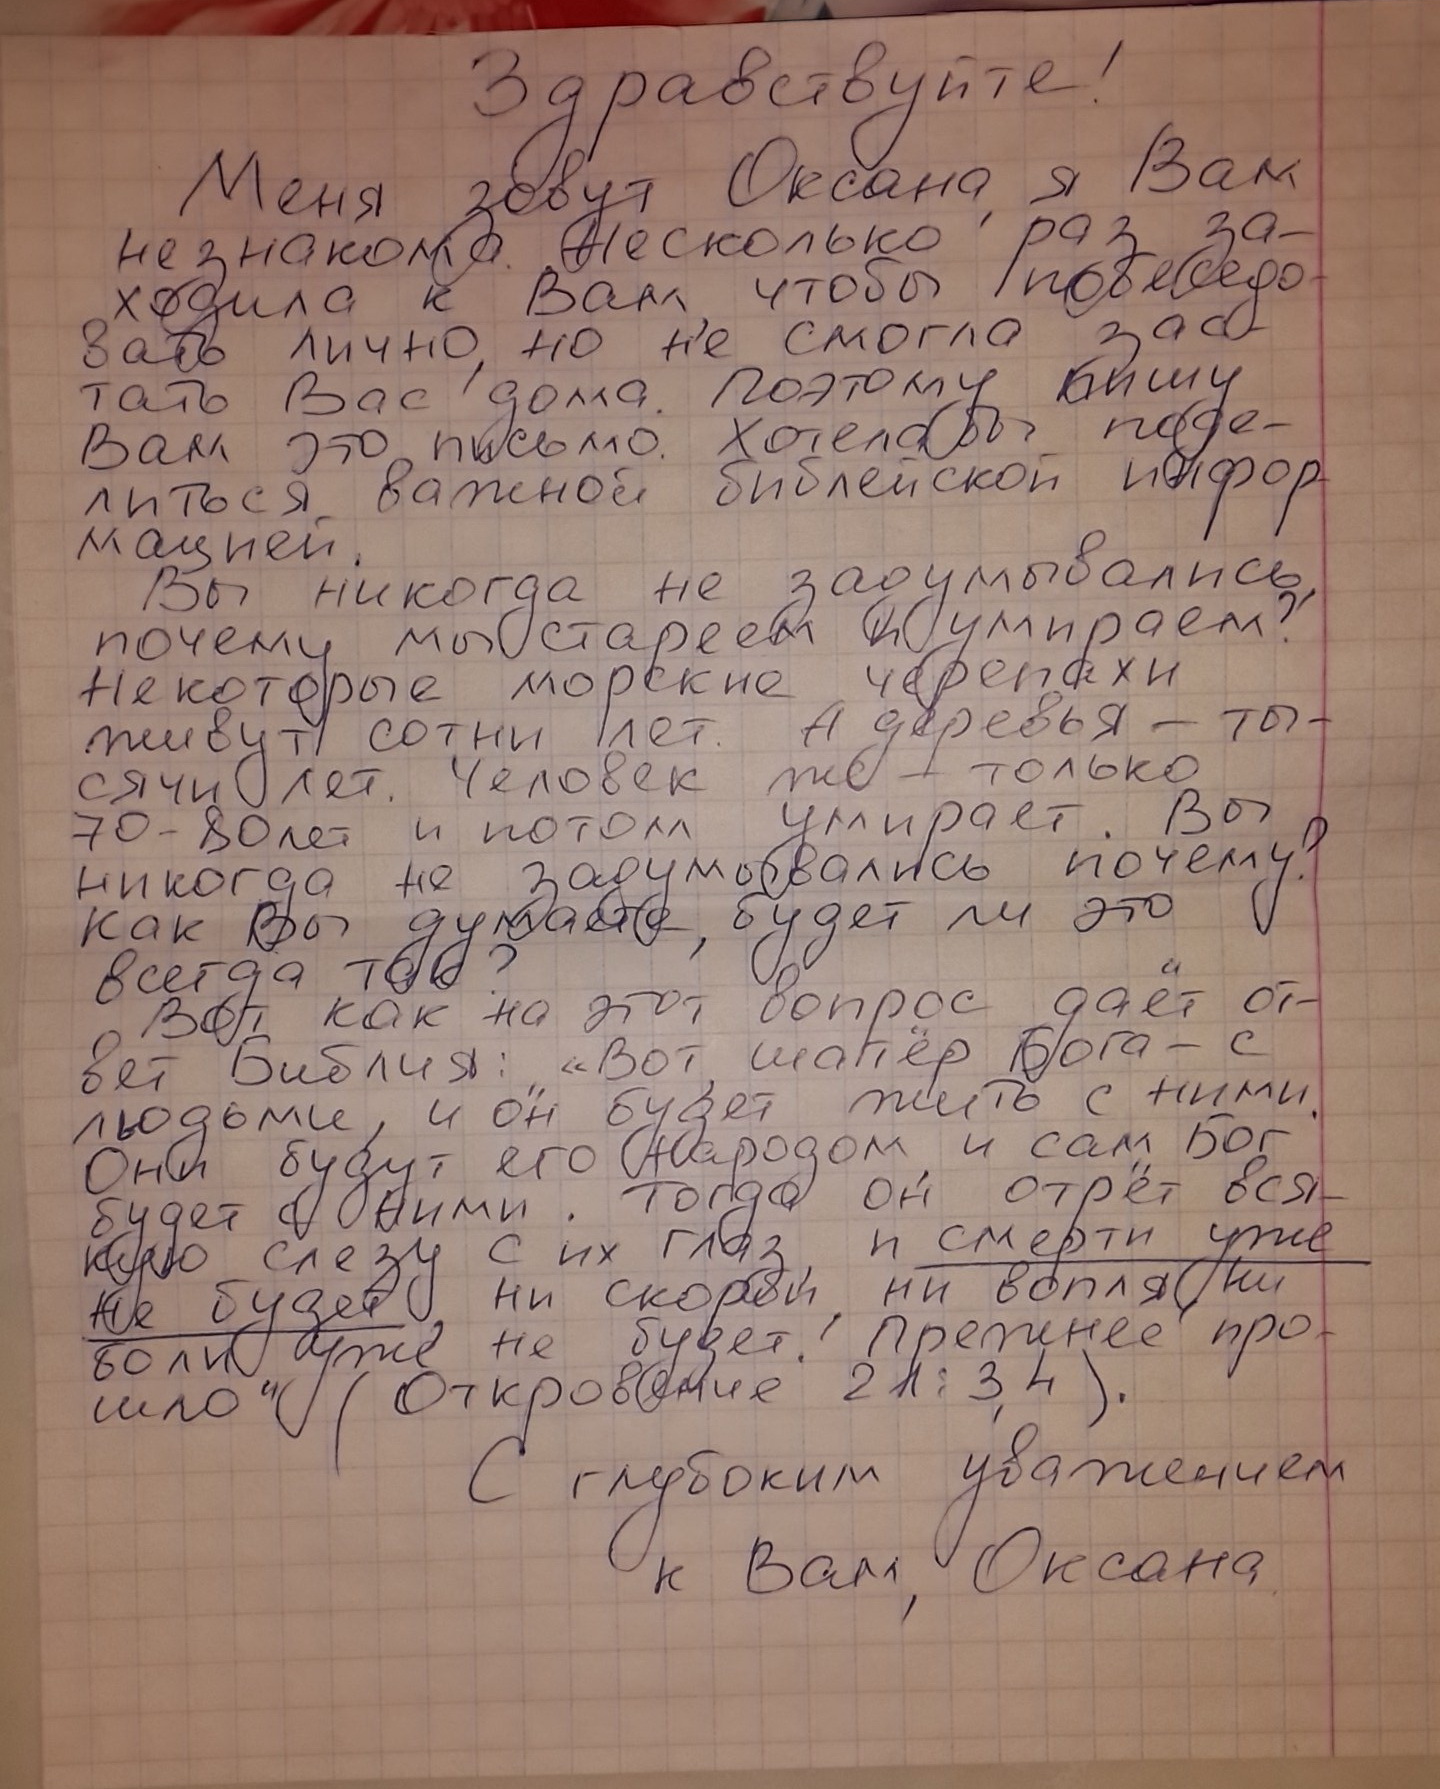 Здравствуйте!
Меня зовут Оксана, я Вам
незнакома. Несколько раз за-
ходила к Вам, чтобы побеседо-
вать лично, но не смогла зас-
тать Вас дома. Поэтому пишу
Вам это письмо. Хотела бы поде-
литься важной библейской инфор-
мацией.
Вы никогда не задумывались,
почему мы стареем и умираем?
Некоторые морские черепахи
живут сотни лет. А деревья – ты-
сячи лет. Человек же – только
70-80 лет и потом умирает. Вы
никогда не задумывались почему?
Как Вы думаете, будет ли это
всегда так?
Вот как на этот вопрос даёт от-
вет Библия: „«Вот, шатёр Бога – с
людьми, и он будет жить с ними.
Они будут его народом, и сам Бог
будет с ними. Тогда он отрёт вся-
кую слезу с их глаз, и смерти уже
не будет, ни скорби, ни вопля, ни
боли уже не будет! Прежнее про-
шло“ (Откровение 21:3,4).
С глубоким уважением
к Вам, Оксана